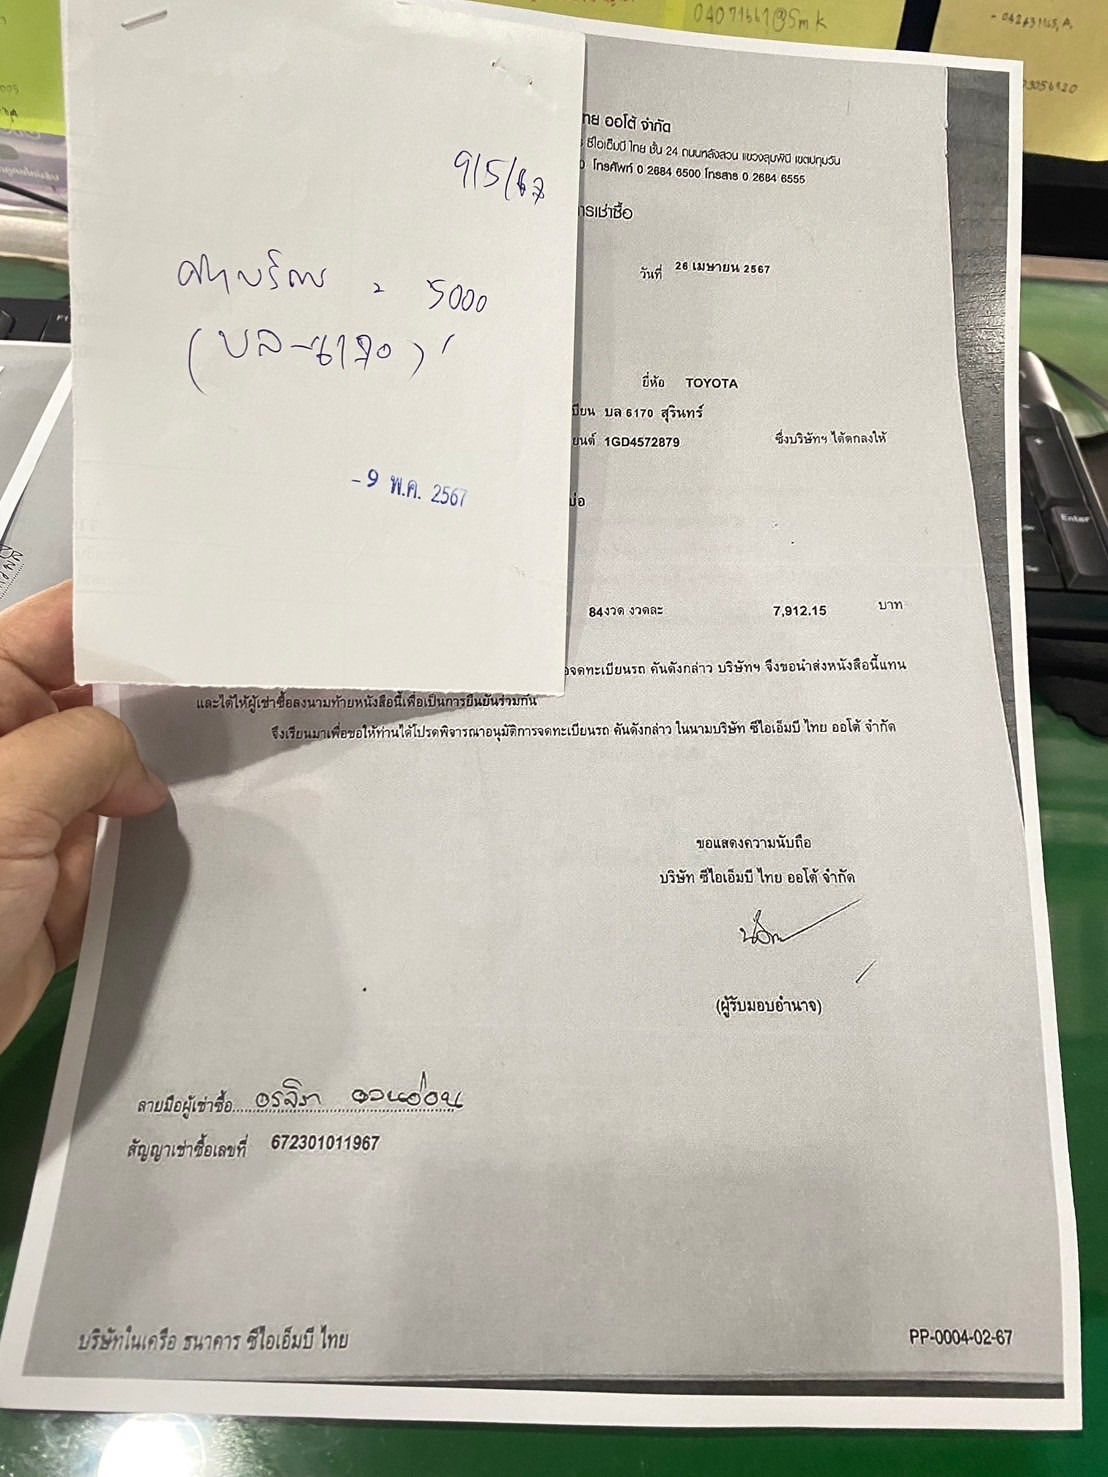 04071661@Smk
9/5/67
= 5000
-9 พ.ค. 2567
ไทย ออโต้ จำกัด
ซีไอเอ็มบี ไทย ชั้น 24 ถนนหลังสวน แขวงลุมพินี เขตปทุมวัน
0 โทรศัพท์ 0 2684 6500 โทรสาร 0 2684 6555
การเช่าซื้อ
วันที่ 26 เมษายน 2567
ยี่ห้อ TOYOTA
เบียน บล 6170 สุรินทร์
ยนต์ 1GD4572879 ซึ่งบริษัทฯ ได้ตกลงให้
84งวด งวดละ 7,912.15 บาท
จดทะเบียนรถ คันดังกล่าว บริษัทฯ จึงขอนำส่งหนังสือนี้แทน
และได้ให้ผู้เช่าซื้อลงนามท้ายหนังสือนี้เพื่อเป็นการยืนยันร่วมกัน
จึงเรียนมาเพื่อขอให้ท่านได้โปรดพิจารณาอนุมัติการจดทะเบียนรถ คันดังกล่าว ในนามบริษัท ซีไอเอ็มบี ไทย ออโต้ จำกัด
ขอแสดงความนับถือ
บริษัท ซีไอเอ็มบี ไทย ออโต้ จำกัด
(ผู้รับมอบอำนาจ)
ลายมือผู้เช่าซื้อ
สัญญาเช่าซื้อเลขที่ 672301011967
บริษัทในเครือ ธนาคาร ซีไอเอ็มบี ไทย
PP-0004-02-67